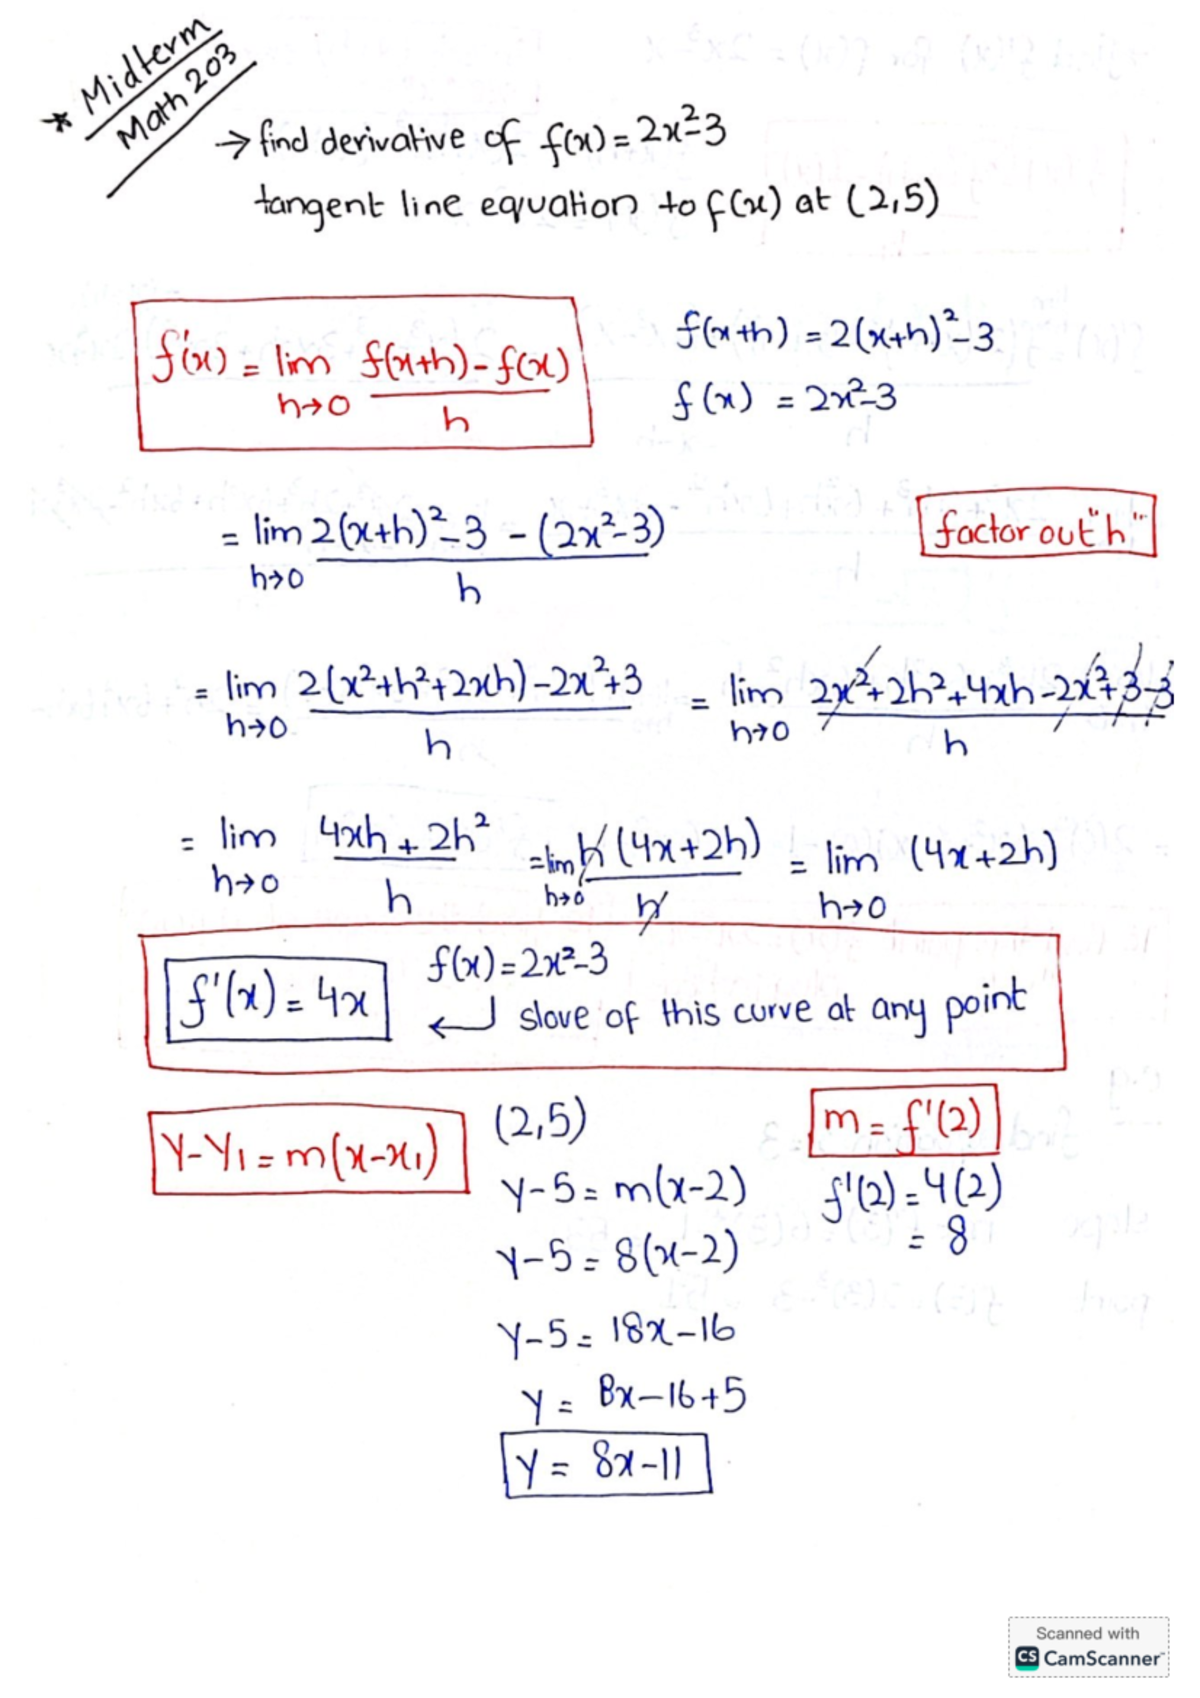 * Midterm
Math 203
→ find derivative of f(x) = 2x²-3
tangent line equation to f(x) at (2,5)
f'(x) = lim h→0 f(x+h) - f(x) / h
f(x+h) = 2(x+h)²-3
f(x) = 2x²-3
= lim h→0 2(x+h)²-3 - (2x²-3) / h
factor out "h"
= lim h→0 2(x²+h²+2xh)-2x²+3 / h = lim h→0 2x²+2h²+4xh-2x²+3-3 / h
= lim h→0 4xh+2h² / h = lim h→0 h(4x+2h) / h = lim h→0 (4x+2h)
f'(x) = 4x
f(x) = 2x²-3
↵ slove of this curve at any point
Y-Y₁ = m(x-x₁)
(2,5)
m = f'(2)
Y-5 = m(x-2)
f'(2) = 4(2)
= 8
Y-5 = 8(x-2)
Y-5 = 18x-16
Y = 8x-16+5
Y = 8x-11
Scanned with
CS CamScanner